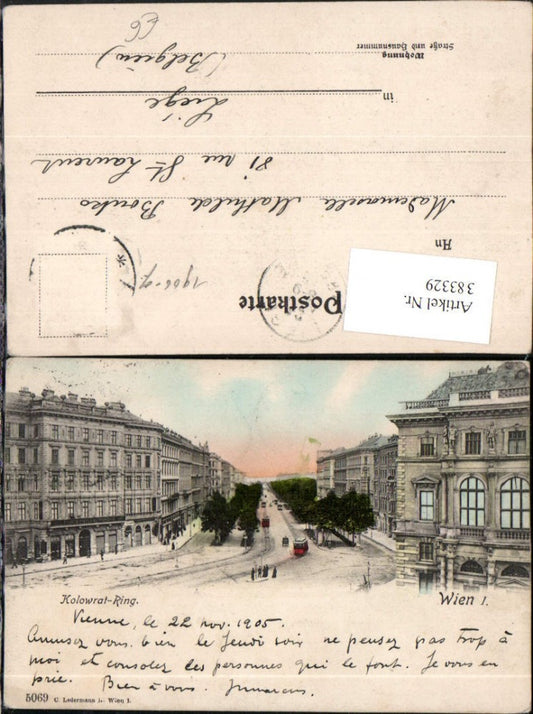 Postkarte
Artikel Nr.
383329
An
Mademoiselle Mathilde Bouko
81 rue St Laurent
in
Liège
Wohnung
Straße und Hausnummer
(Belgien)
Kolowrat-Ring.
Wien I.
Vienne, le 22 nov. 1905.
Amusez vous bien le Jeudi soir ne pensez pas trop à
moi et consoler des personnes qui le font. Je vous en
prie. Bien à vous.
5069 C. Ledermann jr. Wien I.